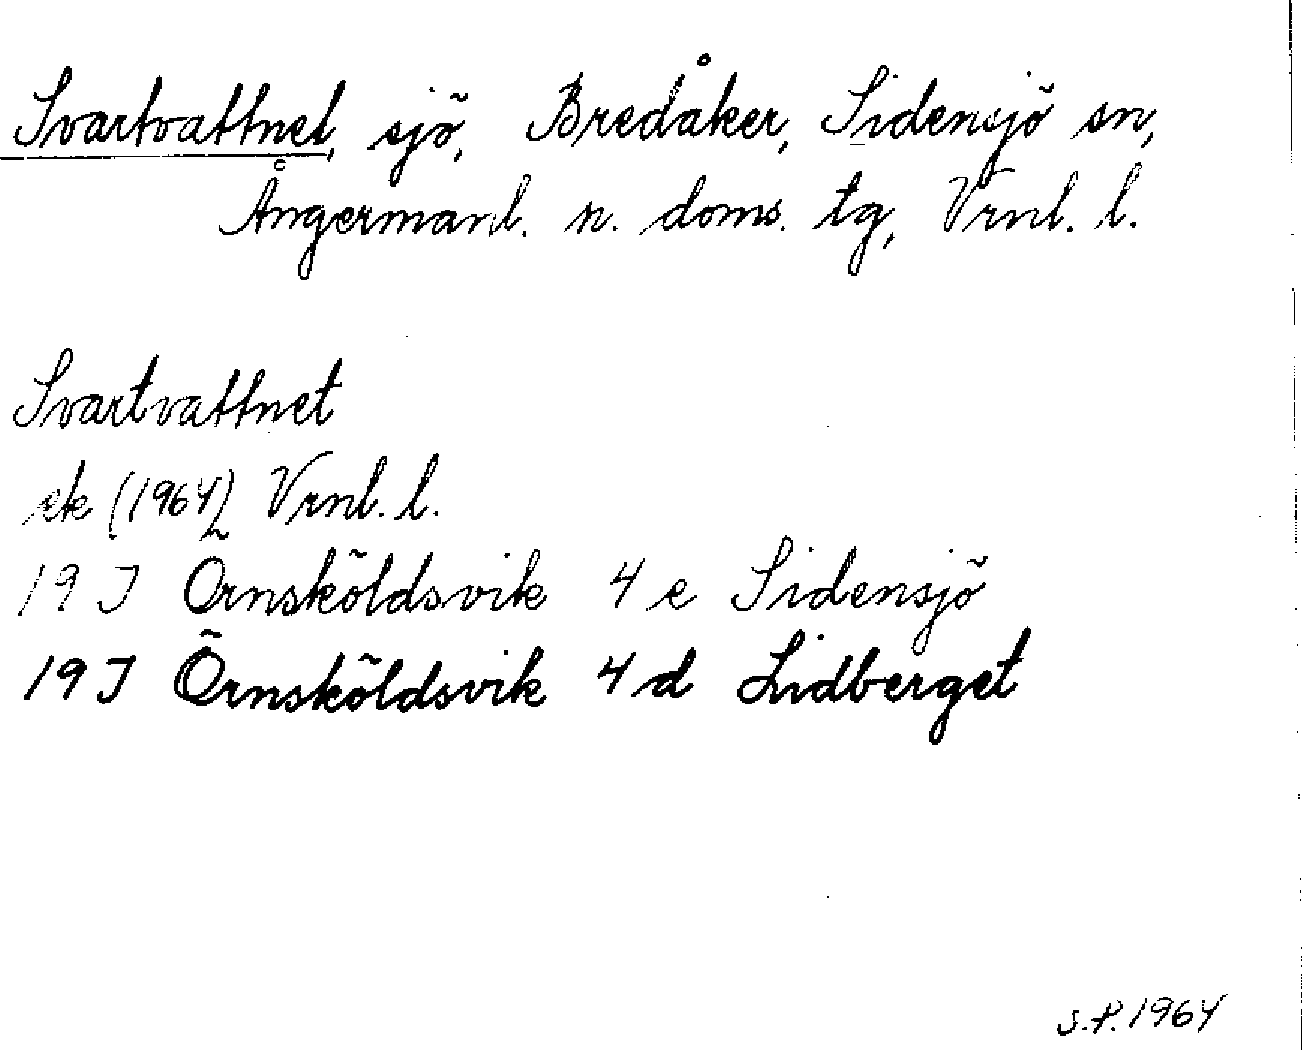 Svartvattnet, sjö, Bredåker, Sidensjö sn,
Ångermanl. n. doms. tg, Vrnl. l.
Svartvattnet
ek (1964) Vrnl. l.
19 J Örnsköldsvik 4 e Sidensjö
19 J Örnsköldsvik 4 d Lidberget
S.P. 1964